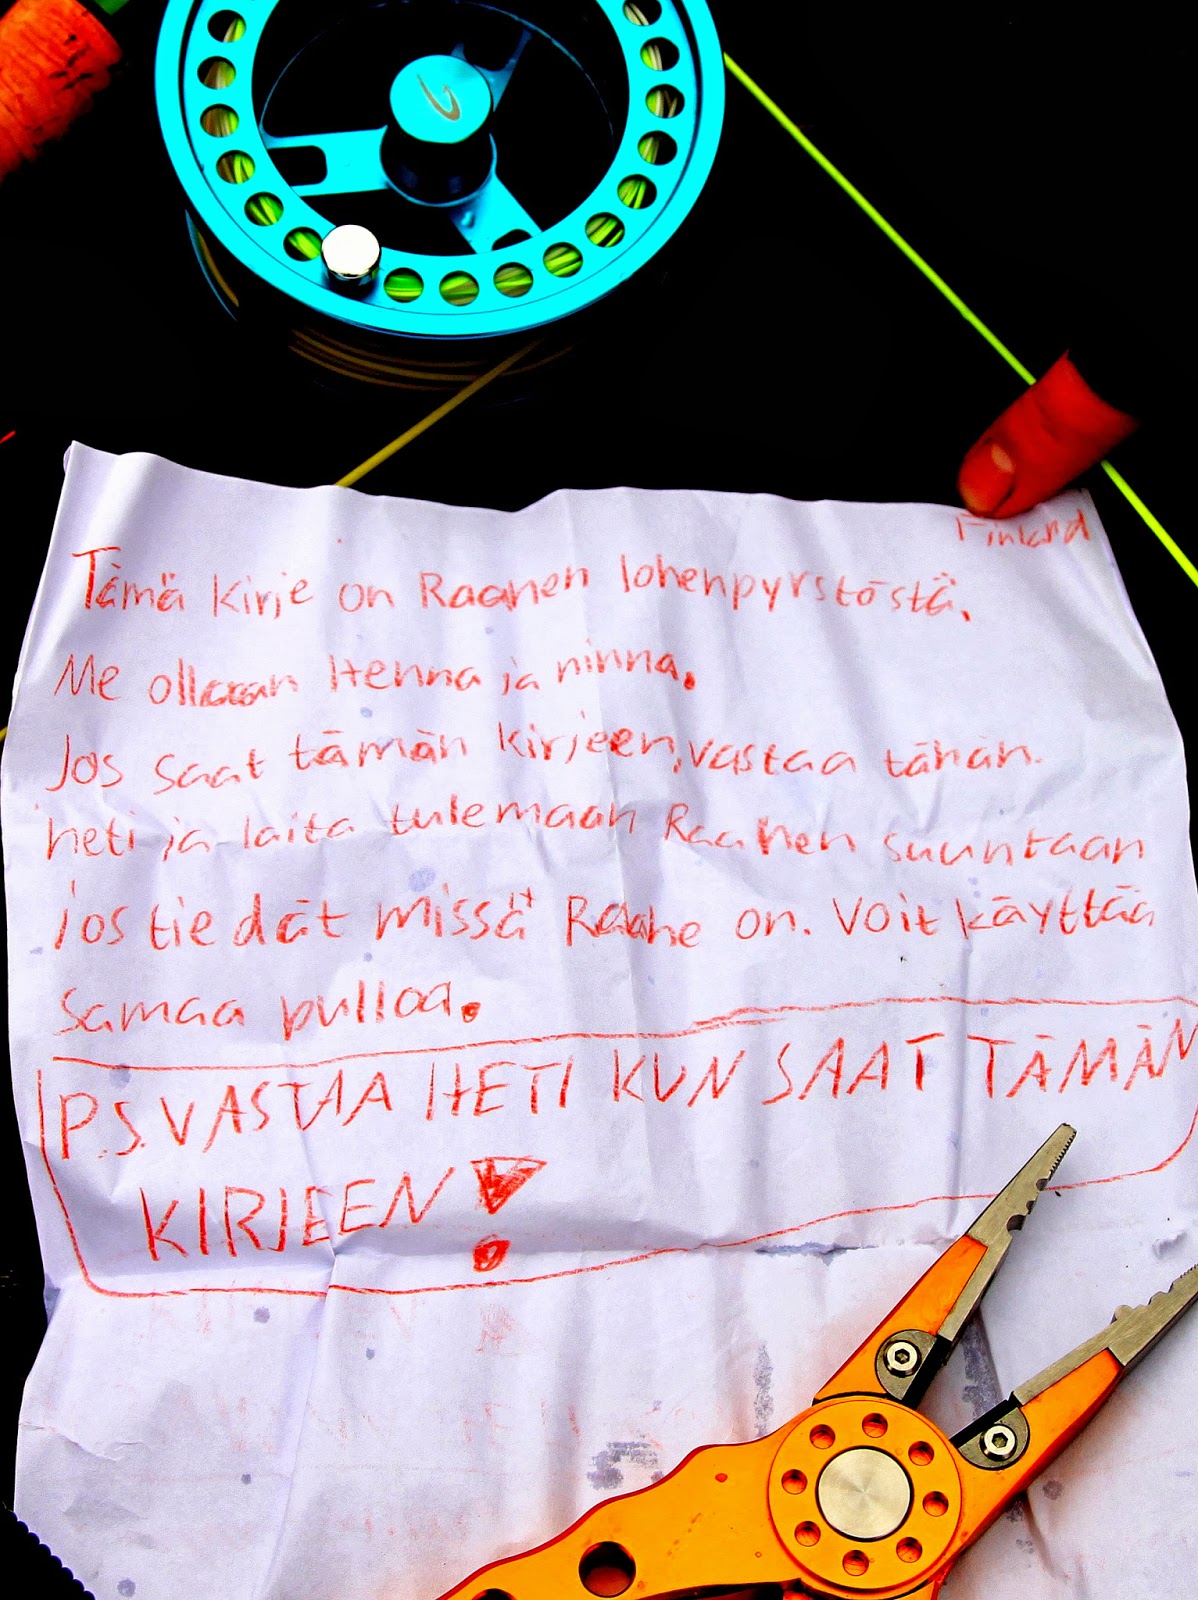 Finland
Tämä kirje on Raahen lohenpyrstöstä.
Me ollaan Henna ja ninna.
Jos saat tämän kirjeen, vastaa tähän.
heti ja laita tulemaan Raahen suuntaan
jos tiedät missä Raahe on. Voit käyttää
samaa pulloa.
P.S. VASTAA HETI KUN SAAT TÄMÄN
KIRJEEN!